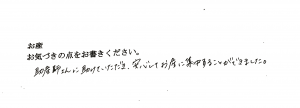 お産
お気づきの点をお書きください。
助産師さんに助けていただき、安心してお産に集中することができました。